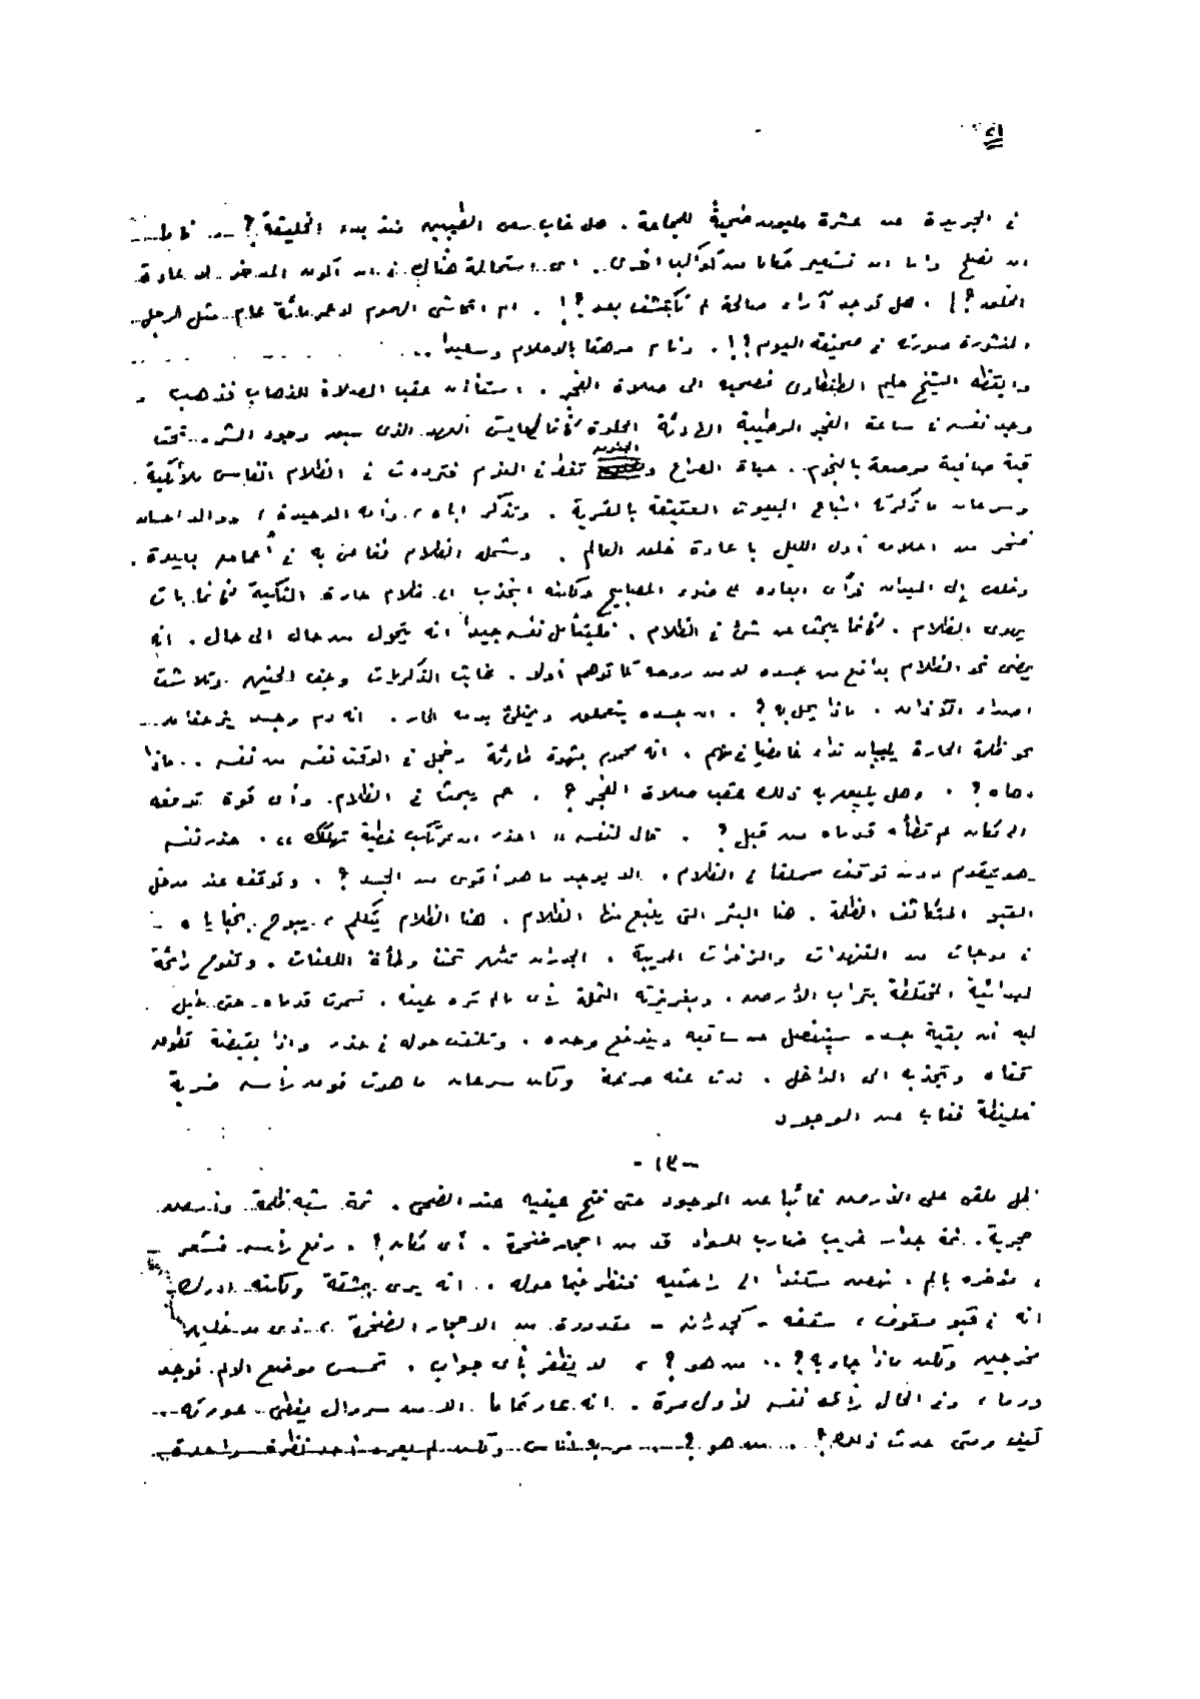 في الجريدة عن عشرة مليون ضحية للمجاعة . هل غاب عن الطيبين منذ بدء الخليقة ؟ ..
ان نصلح واما ان نستعير مكانا من كواكب اخرى .. اى استحالة هناك في ان
الخلد ؟! . هل توجد آراء صالحة لم تكتشف بعد ؟! . ام اتحاشى الهموم لاعمر مائة عام مثل الرجل
المنشورة صورته في صحيفة اليوم ؟! . ونام مرهقا بالاحلام وسعيدا ..
وايقظه الشيخ حليم الطنطاوى فصحبه الى صلاة الفجر . استأذن عقب الصلاة للذهاب فذهب و
وجد نفسه في ساعة الفجر الرطيبة الهادئة الحلوة فكأنما يعايش العهد الذى سبق وجود الشر . تحت
قبة صافية مرصعة بالنجوم . حياة الصراع و الجنون تغط في النوم فترددت في الظلام انفاس ملائكية .
وسرعان ما ذكرته اشباح البيوت العتيقة بالقرية . وتذكر اباه ، وأمه الوحيدة ، ووالد احسان
فسخر من احلامه أول الليل باعادة خلق العالم . وشمله الظلام فغاص به في أعماق بعيدة .
وخلص إلى الميدان فرأى ابعاده على ضوء المصابيح ولكنه انجذب الى ظلام حارة التكية فكأنما بات
يهوى الظلام . كأنما يبحث عن شئ في الظلام . فليتأمل نفسه جيدا انه يتحول من حال الى حال . انه
يمضى نحو الظلام بدافع من جسده لا من روحه كما توهم أولا . غابت الذكريات وجف الحنين وتلاشت
اصداء الأذان . ماذا يحل به ؟ . ان جسده يتعملق ويمتلئ بدمه الحار . انه دم وجسد يزحفان
نحو ظلمة الحارة يلبيان نداء غامضا في نهم . انه محموم بشهوة طارئة وخجل في الوقت نفسه من نفسه .. ماذا
دهاه ؟ . وهل يليق به ذلك عقب صلاة الفجر ؟ . عم يبحث في الظلام . وأى قوة تدفعه
الى مكان لم تطأه قدماه من قبل ؟ . قال لنفسه " احذر ان ترتكب خطية تهلكك " . حذر نفسه
وهو يتقدم دون توقف محملقا في الظلام . الا يوجد ما هو أقوى من الجسد ؟ . وتوقف عند مدخل
القبو المتكاثف الظلمة . هنا البئر التى ينبع منها الظلام . هنا الظلام يتكلم ، يبوح بخباياه
في موجات من التنهدات والزفرات المريبة . الجدران تنتهر تحت وطأة اللعنات . وتفوح رائحة
البدائية المختلطة بتراب الأرض . وبغريزته الثملة رأى مالم تره عينه . تسمرت قدماه حتى خيل
اليه أن بقية جسده سينفصل عن ساقيه ويندفع وحده . وتلفت حوله في حذر واذا بقبضة تطوق
كتفاه وتجذبه الى الداخل . ندت عنه صرخة ولكن سرعان ما هوت فوق رأسه ضربة
غليظة فغاب عن الوجود
- ١٣ -
ظل ملقى على الأرض غائبا عن الوجود حتى فتح عينيه عند الضحى . ثمة شبه ظلمة وأرض
حجرية . ثمة جدار غريب ضارب للسواد قد من احجار ضخمة . أى مكان ؟ . رفع رأسه فشعر
في مؤخره بألم . نهض مستندا الى راحتيه فنظر فيما حوله . انه يرى بمشقة ولكنه ادرك
انه في قبو مسقوف ، سقفه - كجدرانه - مقدودة من الاحجار الضخمة ،
مخرجين ولكن ماذا جاء به ؟ .. من هو ؟ ، لا يظفر بأى جواب . تحسس موضع الالم فوجد
ورما ، وفي الحال رأى نفسه لأول مرة . انه عار تماما الا من سروال يغطى عورته ..
كيف ومتى حدث ذلك ؟ . من هو ؟